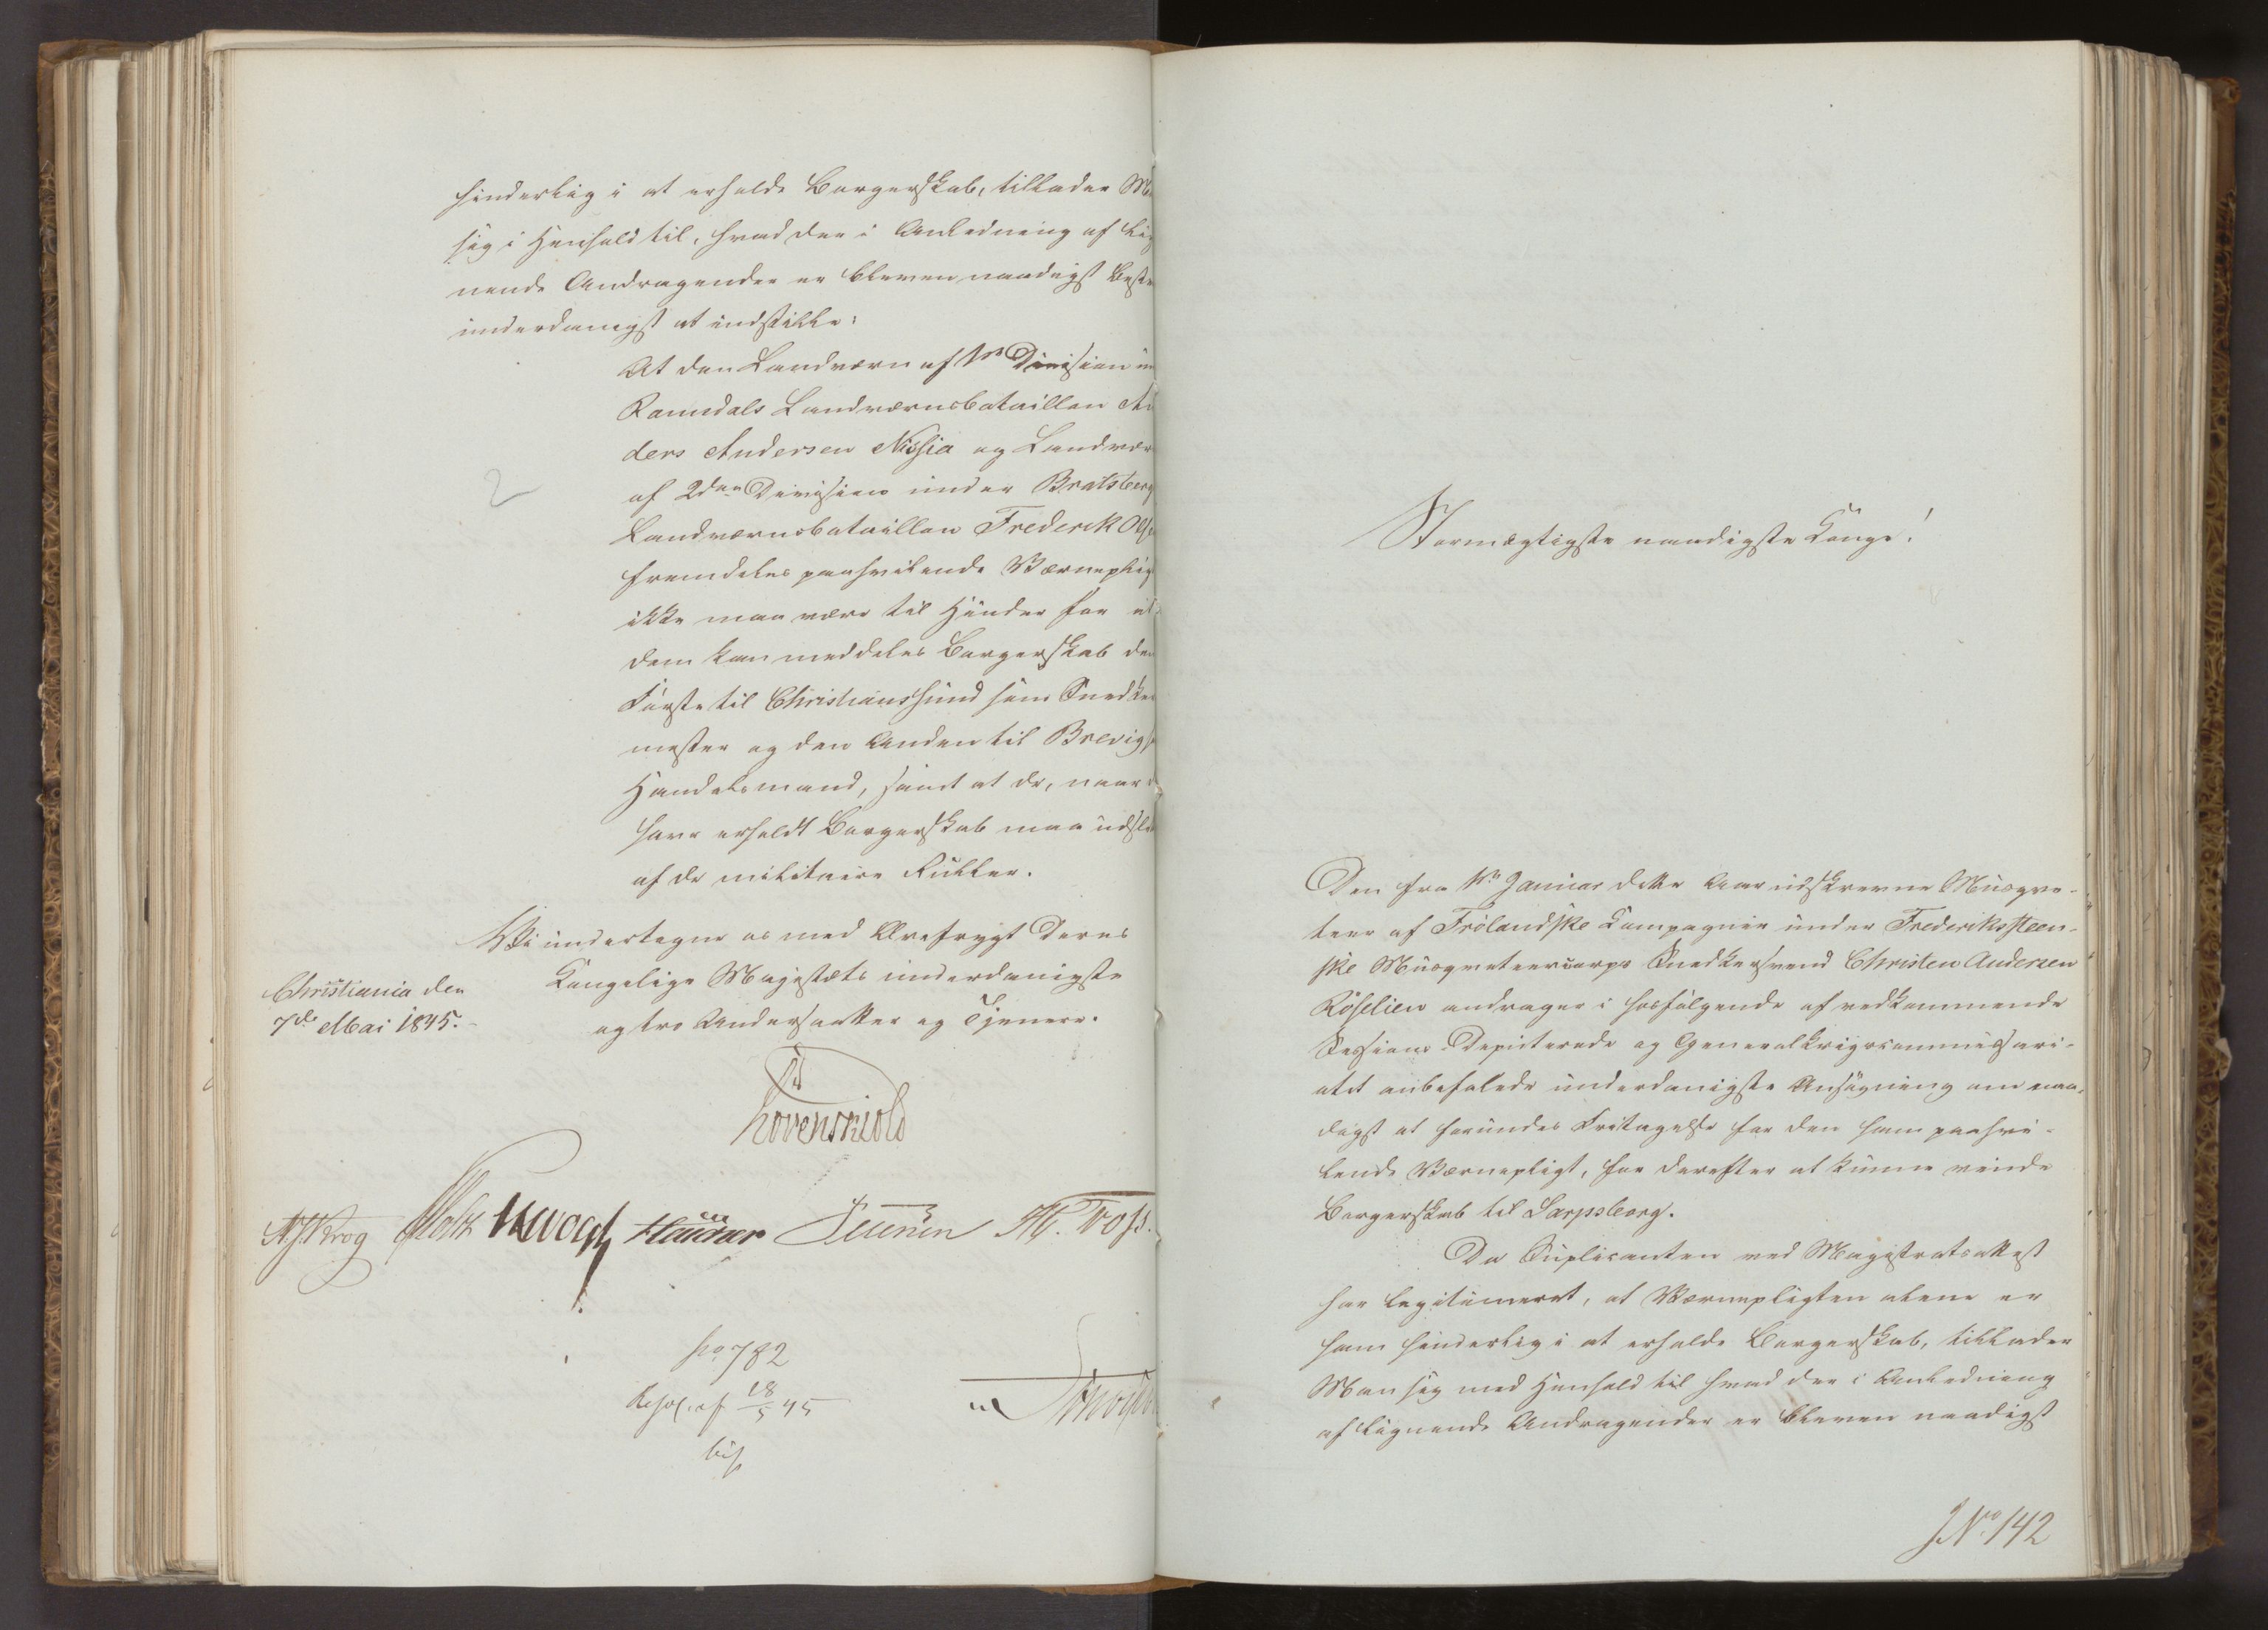 hinderlig i at erholde Borgerskab, tillader M
sig i Henhold til, hvad der i Anledning af lig
nende Andragender er bleven naadigst best
underdanigst at indstille:
At den Landværn af 1ste Division un
Romsdals Landværnsbataillon An
ders Andersen Nissia og Landvær
af 2den Division under Bratsberg
Landværnsbataillon Frederik Ols
fremdeles paahvilende Værneplig
ikke maa være til Hinder for at
dem kan meddeles Borgerskab den
Første til Christianssund som Snedker
mester og den Anden til Brevig s
Handelsmand, samt at de, naar d
have erholdt Borgerskab maa udsle
af de militaire Ruller.
2
Vi undertegne os med Ærefrygt Deres
Kongelige Majestæts underdanigste
og tro Undersaatter og Tjenere.
Christiania den
7de Mai 1845.
Løvenskiold
Krog Holst Vogt
No 782
Resol. af 18/5 45
Stormægtigste naadigste Konge!
Den fra 1ste Januar dette Aar udskrevne Musqve-
teer af Frølandske Compagnie under Frederikssteen-
ske Musqveteercorps Snedkersvend Christen Andersen
Röselien andrager i hosfølgende af vedkommende
Sessions-Deputerede og Generalkrigscommissari-
atet anbefalede underdanigste Ansøgning om naa-
digst at forundes Fritagelse for den ham paahvi-
lende Værnepligt, for derefter at kunne vinde
Borgerskab til Sarpsborg.
Da Supplicanten ved Magistratsattest
har legitimeret, at Værnepligten alene er
ham hinderlig i at erholde Borgerskab, tillader
Man sig med Henhold til hvad der i Anledning
af lignende Andragender er bleven naadigst
J.No 142